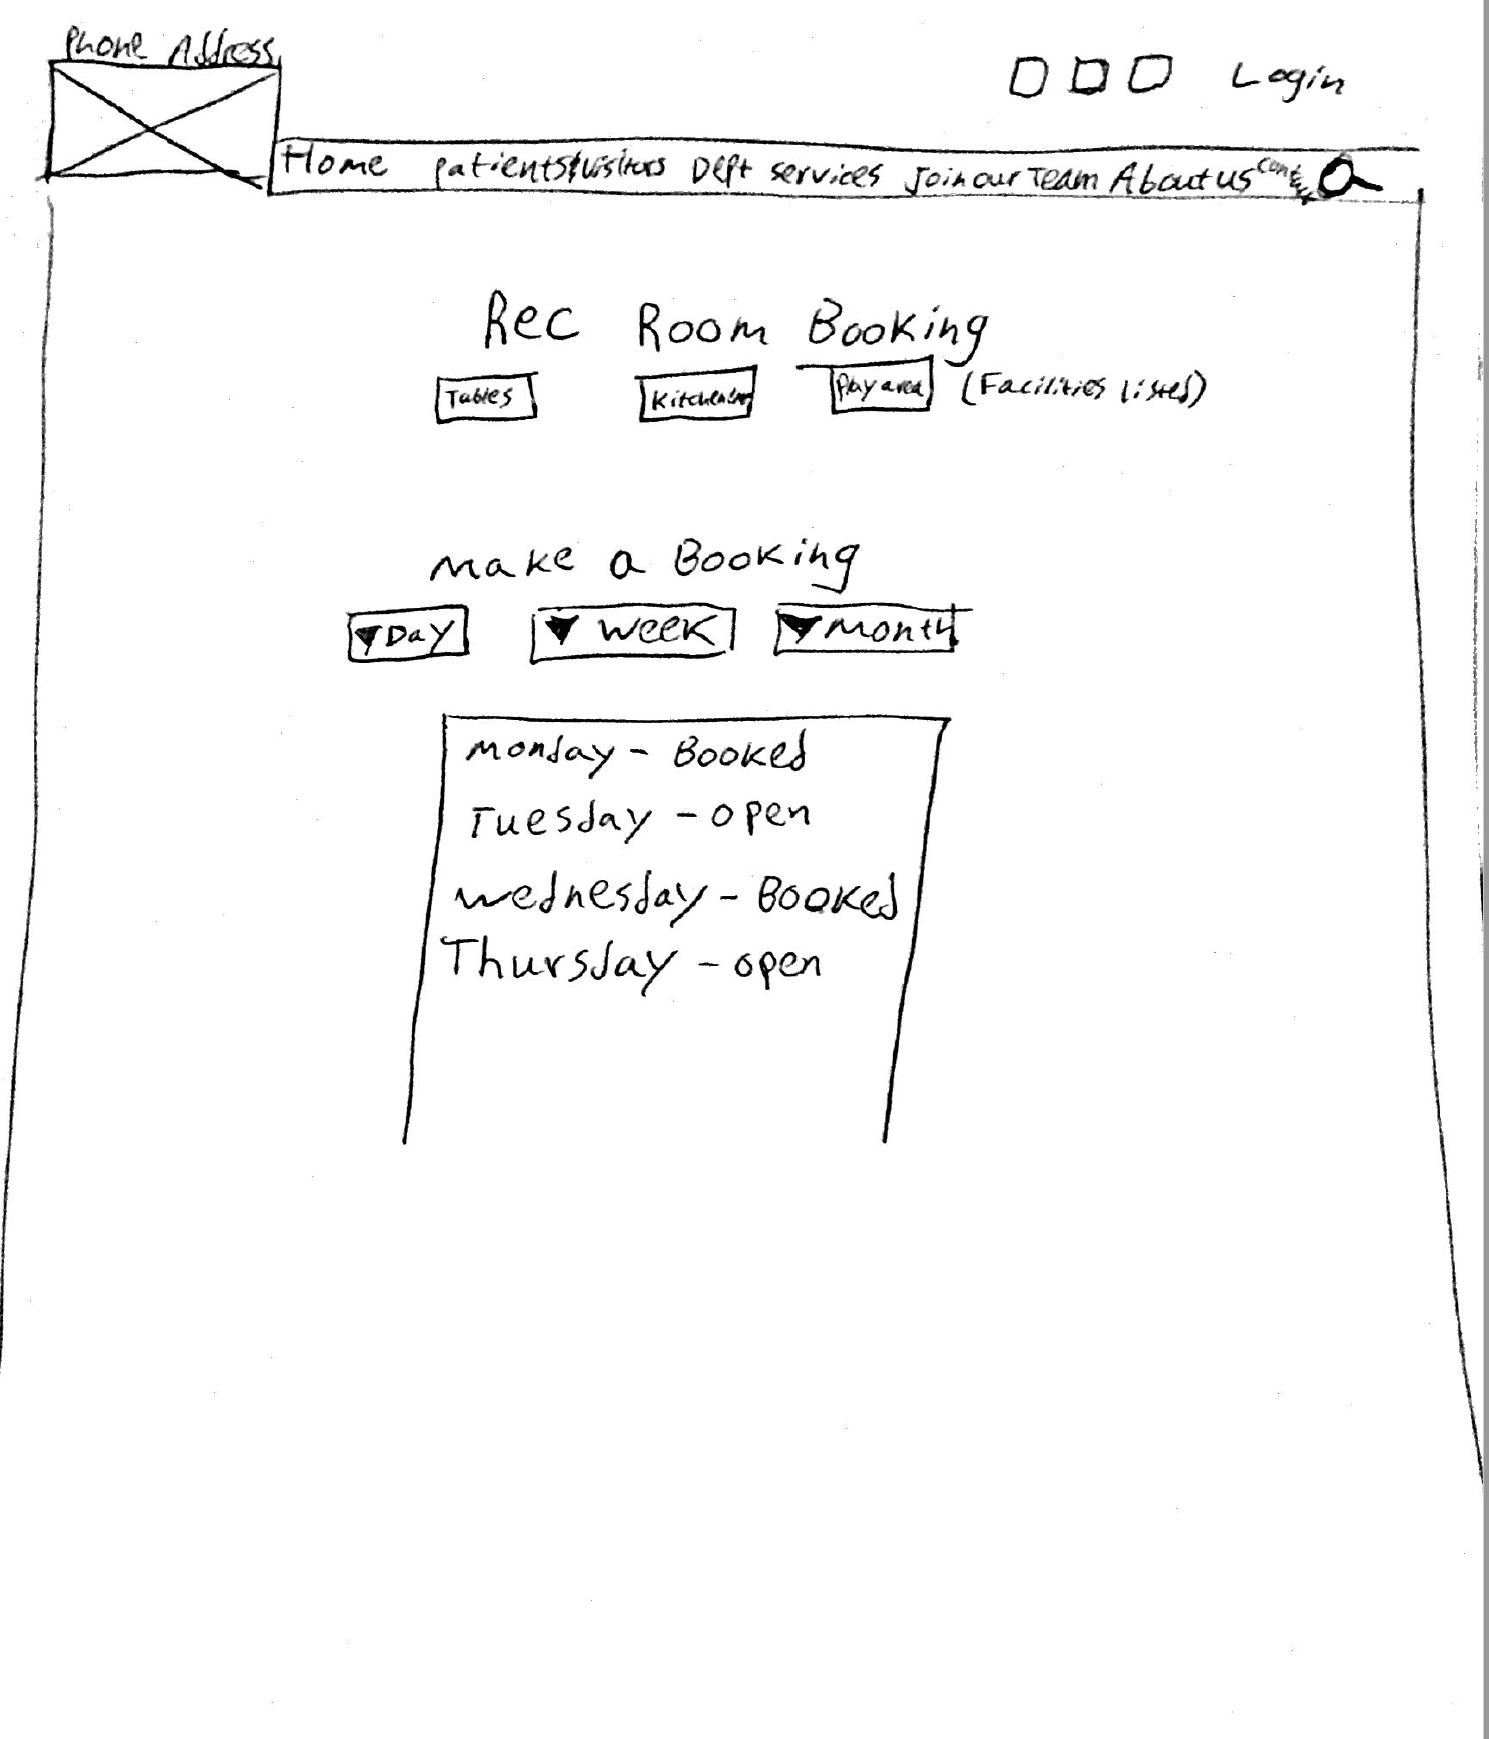 Phone Address
Login
Home patients & visitors Dept services Join our Team About us
Rec Room Booking
Tables Play area (Facilities listed)
make a Booking
Day week month
monday - Booked
Tuesday - open
wednesday - Booked
Thursday - open